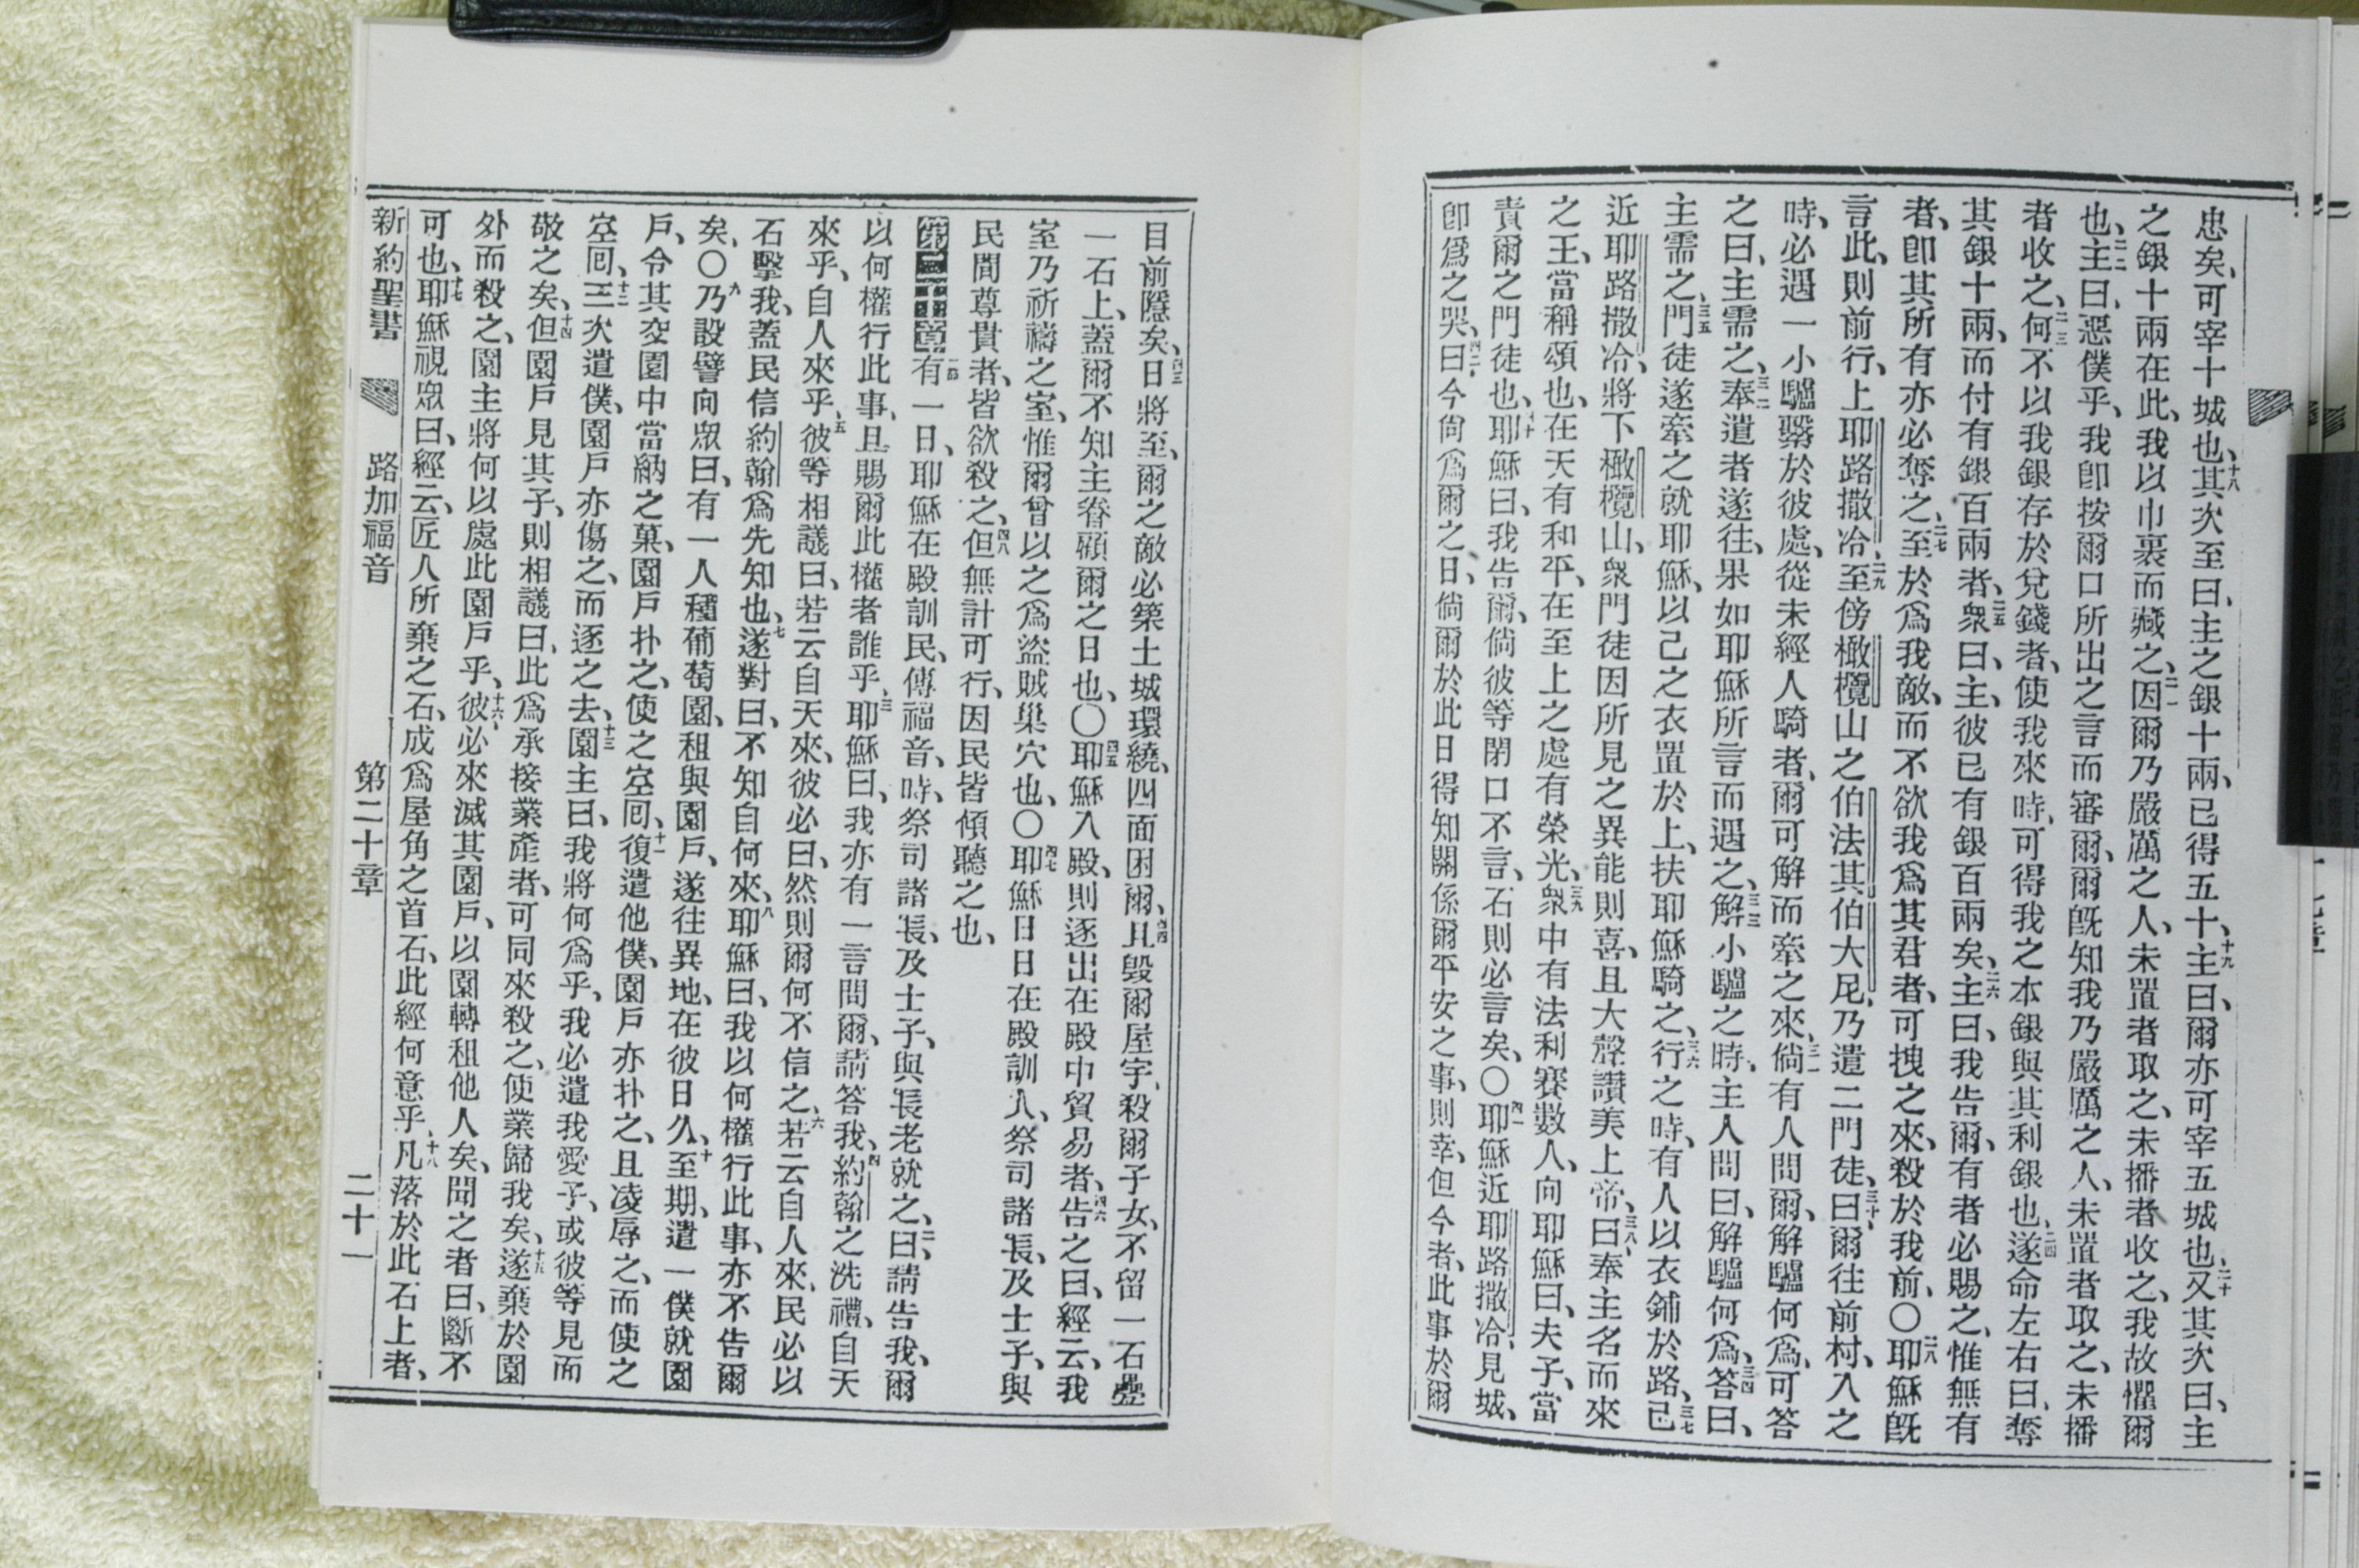 忠矣、可宰十城也、十八其次至曰、主之銀十兩、已得五十、十九主曰、爾亦可宰五城也、二十又其次曰、主
之銀十兩在此、我以巾裹而藏之、二一因爾乃嚴厲之人、未置者取之、未播者收之、我故懼爾
也、二二主曰、惡僕乎、我卽按爾口所出之言而審爾、爾旣知我乃嚴厲之人、未置者取之、未播
者收之、二三何不以我銀存於兌錢者、使我來時、可得我之本銀與其利銀也、二四遂命左右曰、奪
其銀十兩、而付有銀百兩者、二五衆曰、主、彼已有銀百兩矣、二六主曰、我告爾、有者必賜之、惟無有
者、卽其所有亦必奪之、二七至於爲我敵、而不欲我爲其君者、可拽之來、殺於我前、〇二八耶穌旣
言此、則前行、上耶路撒冷、二九至傍橄欖山之伯法其、伯大尼、乃遣二門徒、三十曰、爾往前村、入之
時、必遇一小驢繫於彼處、從未經人騎者、爾可解而牽之來、三一倘有人問爾、解驢何爲、可答
之曰、主需之、三二奉遣者遂往、果如耶穌所言而遇之、三三解小驢之時、主人問曰、解驢何爲、三四答曰、
主需之、三五門徒遂牽之就耶穌、以己之衣置於上、扶耶穌騎之、三六行之時、有人以衣鋪於路、三七已
近耶路撒冷、將下橄欖山、衆門徒因所見之異能則喜、且大聲讚美上帝、三八曰、奉主名而來
之王、當稱頌也、在天有和平、在至上之處有榮光、三九衆中有法利賽數人、向耶穌曰、夫子、當
責爾之門徒也、四十耶穌曰、我告爾、倘彼等閉口不言、石則必言矣、〇四一耶穌近耶路撒冷、見城、
卽爲之哭、四二曰、今尙爲爾之日、倘爾於此日得知關係爾平安之事、則幸、但今者、此事於爾
目前隱矣、四三日將至、爾之敵必築土城環繞、四面困爾、四四且毀爾屋宇、殺爾子女、不留一石疊
一石上、蓋爾不知主眷顧爾之日也、〇四五耶穌入殿、則逐出在殿中貿易者、四六告之曰、經云、我
室乃祈禱之室、惟爾曾以之爲盜賊巢穴也、〇四七耶穌日日在殿訓人、祭司諸長、及士子、與
民間尊貴者、皆欲殺之、四八但無計可行、因民皆傾聽之也、
第二十章一節有一日、耶穌在殿訓民、傳福音、時、祭司諸長、及士子、與長老就之、二曰、請告我、爾
以何權行此事、且賜爾此權者誰乎、三耶穌曰、我亦有一言問爾、請答我、四約翰之洗禮、自天
來乎、自人來乎、五彼等相議曰、若云自天來、彼必曰、然則爾何不信之、六若云自人來、民必以
石擊我、蓋民信約翰爲先知也、七遂對曰、不知自何來、八耶穌曰、我以何權行此事、亦不告爾
矣、〇九乃設譬向眾曰、有一人種葡萄園、租與園戶、遂往異地、在彼日久、十至期、遣一僕就園
戶、令其交園中當納之菓、園戶扑之、使之空囘、十一復遣他僕、園戶亦扑之、且凌辱之、而使之
空囘、十二三次遣僕、園戶亦傷之、而逐之去、十三園主曰、我將何爲乎、我必遣我愛子、或彼等見而
敬之矣、十四但園戶見其子、則相議曰、此爲承接業產者、可同來殺之、使業歸我矣、十五遂棄於園
外而殺之、園主將何以處此園戶乎、十六彼必來滅其園戶、以園轉租他人矣、聞之者曰、斷不
可也、十七耶穌視眾曰、經云、匠人所棄之石、成爲屋角之首石、此經何意乎、十八凡落於此石上者、
新約聖書 路加福音 第二十章 二十一